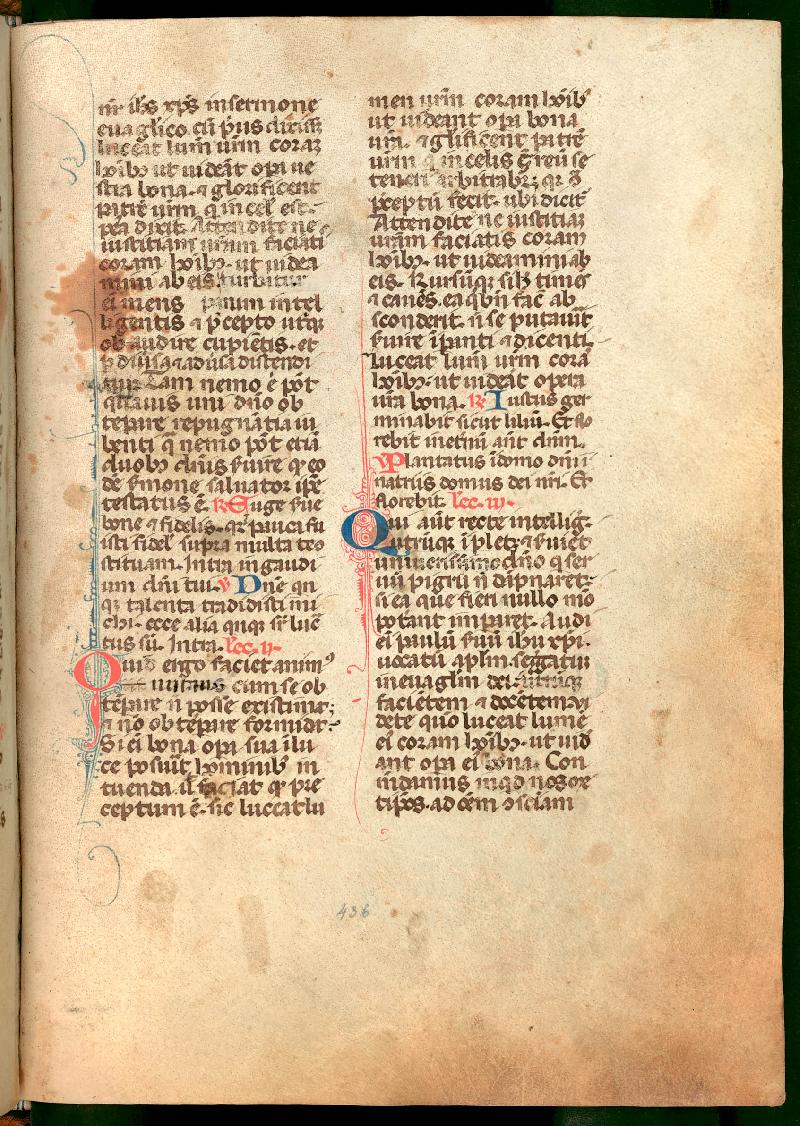 nr̄ ih̄s xp̄s in sermone
euāglico cū p̄us dixiss;
luceat lum̄ ur̄m coraȝ
hōib; ut uideāt op̄a ue
stra bona. ⁊ glorificent
patrē ur̄m. q̄ in cel̄ est.
p̄ea dixit. Attendite ne
iustitiam ur̄am faciati
coram hōib;. ut uidea
mini ab eis. turbatur
ei mens parum intel
ligentis ⁊ p̄cepto utr̄q;
ob audire cupiētis. et
p̄ diu̇sa ⁊ adu̇sa distendi
tur. Tam nemo ē pōt
quāuis uni dn̄o ob
tēpare repugnātia iu
benti q̄ nemo pōt etiā
duob; dn̄is ẜuire q̄ eo
dē ẜmone saluator ip̄e
testatus ē. ℟ Euge ẜue
bone ⁊ fidelis. qr̄ pauca fu
isti fidel̄ supra multa te ɔ
stituam. Intra in gaudi
um dn̄i tui. ℣ Dn̄e qn̄
q; talenta tradidisti mi
chi. ecce alia quinq; sr̄ luc̄
tus sū. Intra. lec. ij.
Quid ergo faciet anim;
cum se ob
tēpare n̄ posse existimat;
⁊ nō obtēpare formidat.
Si ei̇ bona op̄a sua ī lu
ce posuīt hominib; in
tuenda. il̄ faciat q̄ pre
ceptum ē. sic luceat lu
men ur̄m coram hōib;
ut uideant op̄a bona
ur̄a. ⁊ gl̄ificent patrē
urm̄ q̄ in celis ē; reū se
teneri arbitrab̄r; qr̄ ɔ̄
p̄ceptū fecit. ubi dicit
Attendite ne iustitiaȝ
ur̄am faciatis coram
hōib;. ut uideamini ab
eis. Rursūq; sib; timēs
⁊ cauēs. ea q̄ bn̄ fac̄ ab
sconderit. n̄ se putauit
ẜuire īpanti ⁊ dicenti.
luceat lum̄ ur̄m corā
hōib;. ut uideāt opera
ur̄a bona. ℟ Iustus ger
minabit sicut liliū. Et flo
rebit in et̄nū ant̄ dn̄m.
℣ Plantatus ī domo dn̄i i
natriis domus dei nr̄i. Et
florebit. lec. iij.
Qui aūt recte intelligit.
utrūq; īplet; ⁊ ẜuiet
uniuersissimo dn̄o q̄ ser
uū pigrū n̄ dāpnaret;
si ea que fieri nullo mō
possant imparet. Audi
ei̇ paulū ẜuū ih̄u xp̄i.
uocatū apl̄m. seggatū
in euaglm̄ dei. utrūq;
faciētem ⁊ docētem. Vi
dete quō luceat lumē
ei̇ coram hōib;. ut uid
ant op̄a ei̇ bona. Com
mdamus inq̄d nosme
tip̄os. ad oēm ɔsciam
436